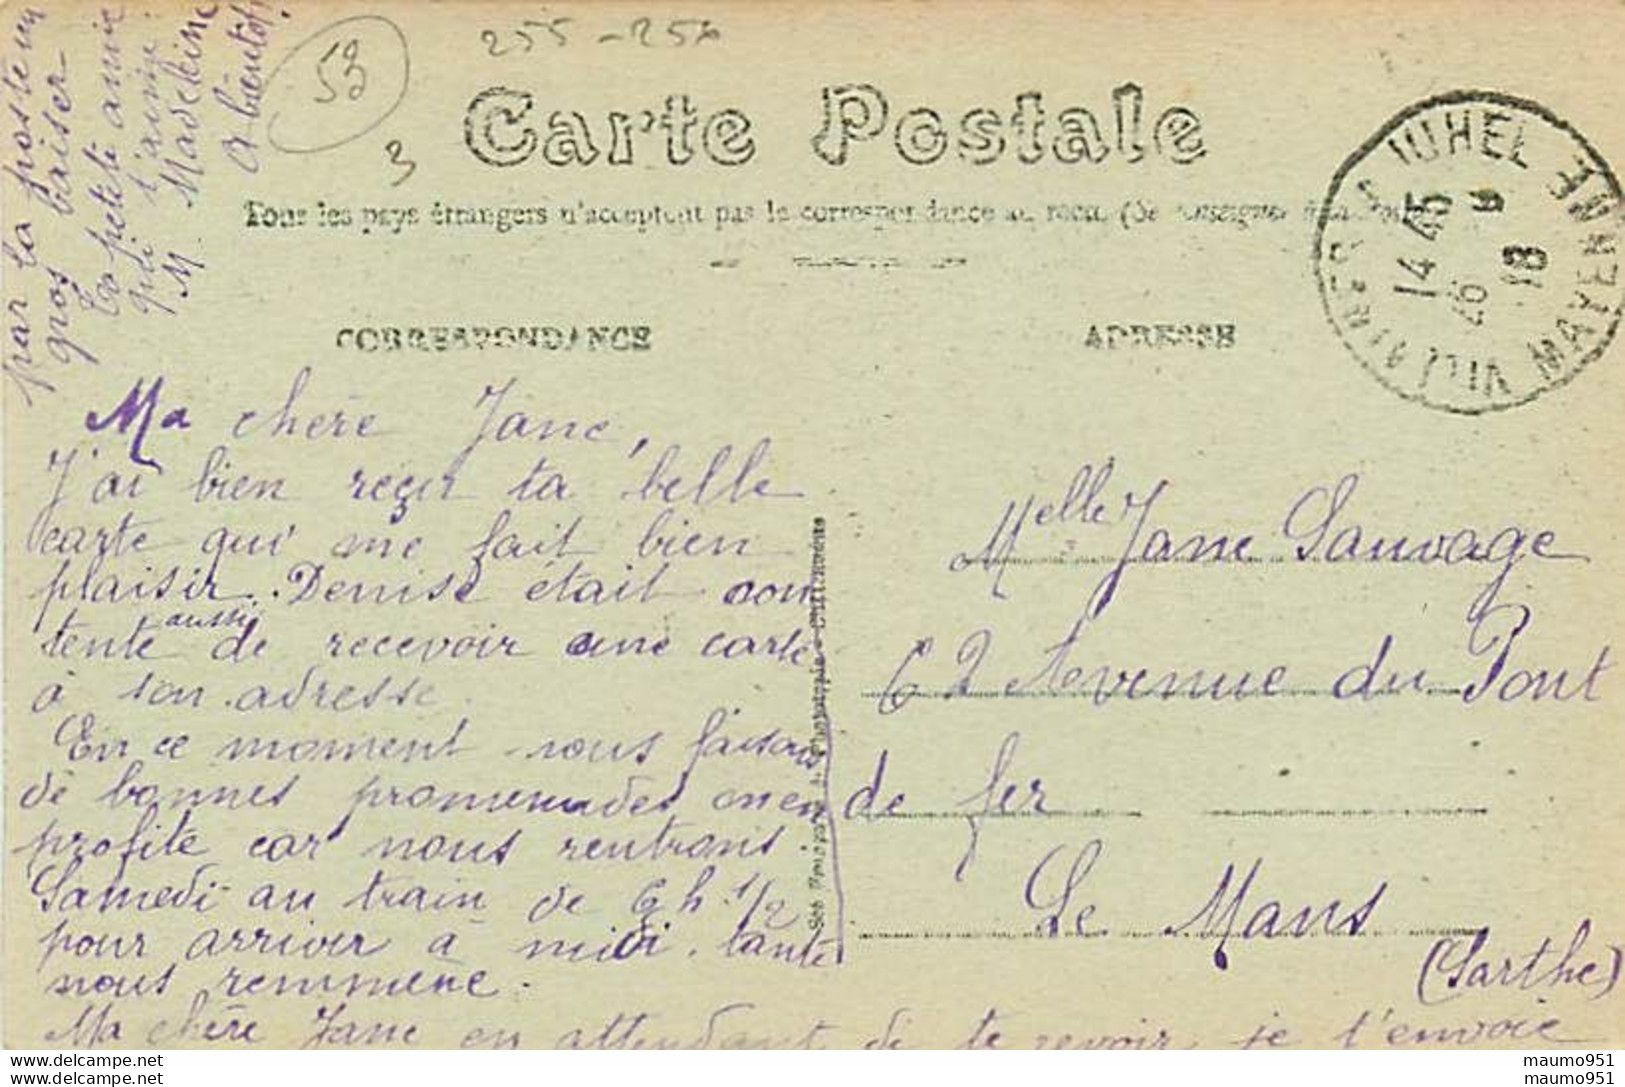 255-256
53
3
Carte Postale
Tous les pays étrangers n'acceptent pas la correspondance au recto (Se renseigner à la
VILLAINES LA JUHEL
MAYENNE
14 45
26 9
18
CORRESPONDANCE
ADRESSE
Ma chère Jane,
J'ai bien reçu ta belle
carte qui me fait bien
plaisir. Denise était con
tente aussi de recevoir une carte
à son adresse.
En ce moment nous faisons
de bonnes promenades on en
profite car nous rentrons
Samedi au train de 6 h. 1/2
pour arriver à midi. tante
nous remmène.
Ma chère Jane en attendant de te revoir je t'envoie
par la poste un
gros baiser
Ta petite amie
qui t'aime
M. Madeleine
A bientôt
Melle Jane Sauvage
62 Avenue du Pont
de fer
Le Mans
(Sarthe)
maumo951
maumo951